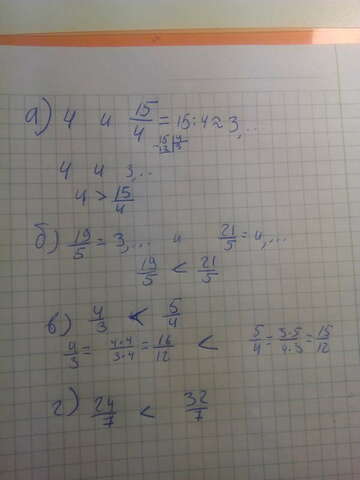 а) 4 и 15/4 = 15:4≈3,..
15|4
12|3
4 и 3,..
4 > 15/4
б) 19/5 = 3,... и 21/5 = 4,...
19/5 < 21/5
в) 4/3 < 5/4
4/3 = 4·4/3·4 = 16/12 < 5/4 = 3·5/4·3 = 15/12
г) 24/7 < 32/7